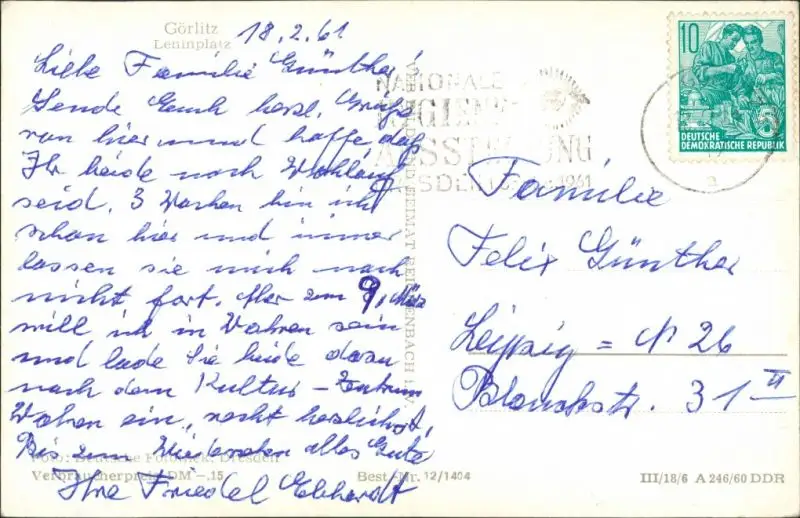 Görlitz
Leninplatz
18.2.61
Liebe Familie Günther!
Sende Euch herzl. Grüße
von hier und hoffe, daß
Ihr beide noch Wohlauf
seid. 3 Wochen bin ich
schon hier und immer
lassen sie mich noch
nicht fort. Aber zum 9. März
will ich in Wahren sein
und lade Sie beide dazu
nach dem Kultur-Zentrum
Wahren ein, recht herzlichst,
Bis zum Wiedersehen alles Gute
Ihre Friedel Ebhardt
Foto: Deutsche Fotothek, Dresden
Verbraucherpreis DM -.15
Best.-Nr. 12/1404
III/18/6 A 246/60 DDR
HEIMAT REICHENBACH I. V.
NATIONALE
HYGIENE
AUSSTELLUNG
DRESDEN 1961
10
5
DEUTSCHE
DEMOKRATISCHE REPUBLIK
a
Familie
Felix Günther
Leipzig = N 26
Blouchstr. 31 II